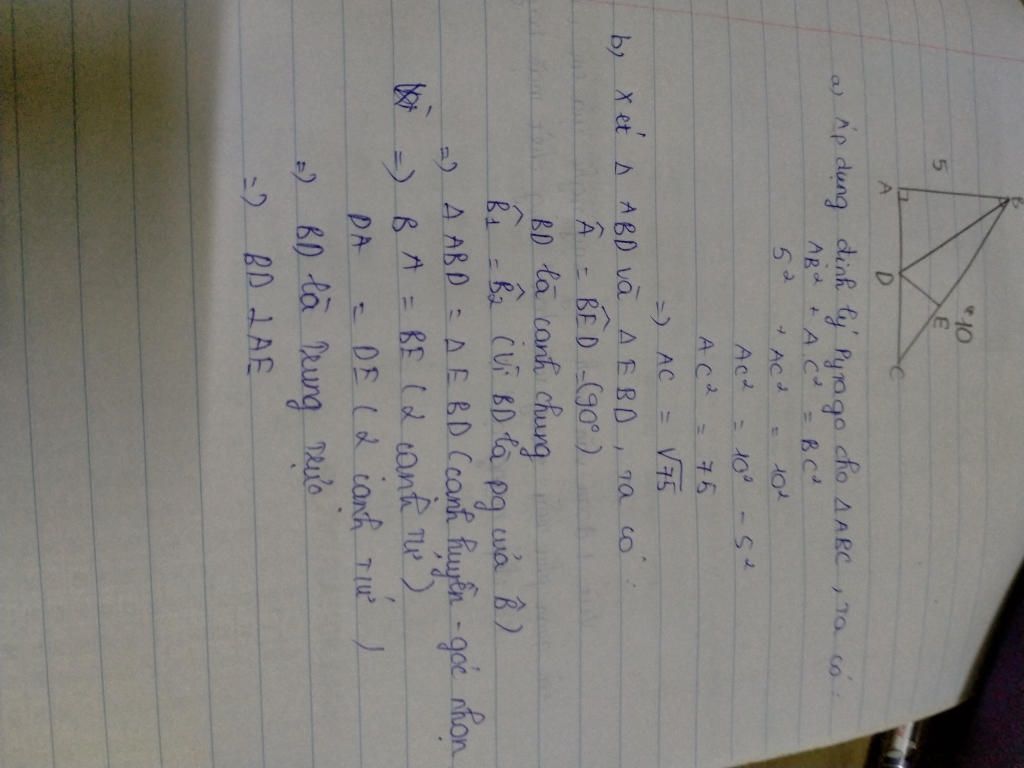 B
5
10
E
A
D
C
a) Áp dụng định lý Pytago cho Δ ABC, ta có:
AB² + AC² = BC²
5² + AC² = 10²
AC² = 10² - 5²
AC² = 75
=) AC = √75
b, Xét Δ ABD và Δ EBD, ta có:
Â = BÊD = (90°)
BD là cạnh chung
B̂1 = B̂2 (Vì BD là pg của B̂)
=) Δ ABD = Δ EBD (cạnh huyền - góc nhọn
=) BA = BE (2 cạnh tứ)
DA = DE (2 cạnh tứ)
=) BD là trung trực
=) BD ⊥ AE